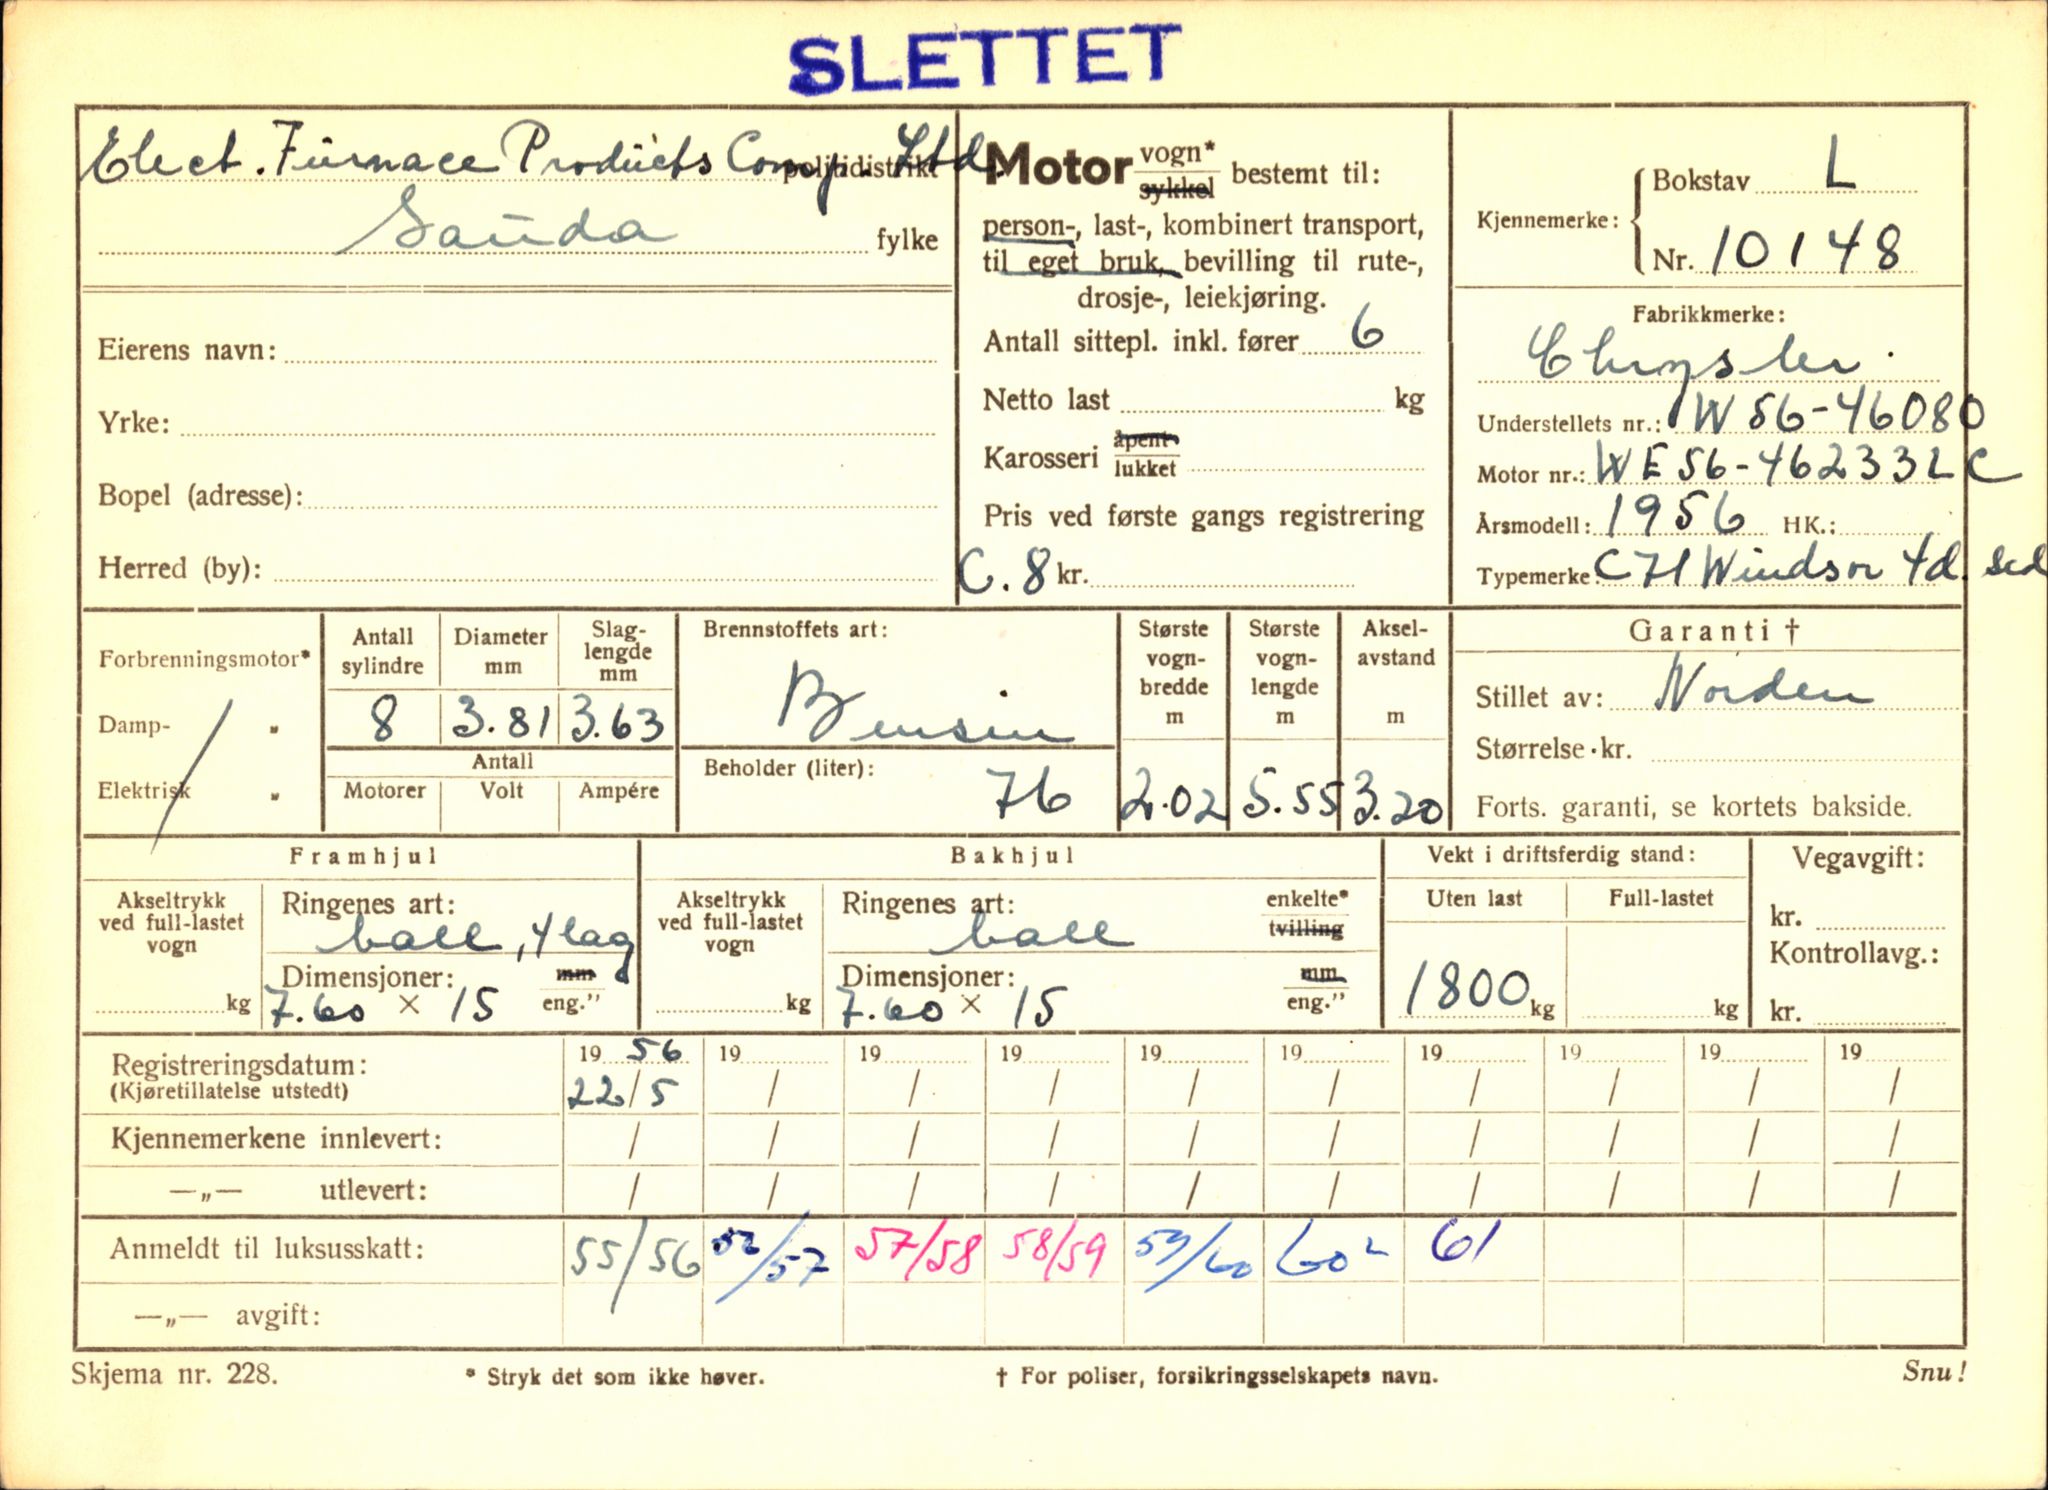 SLETTET
Elect. Furnace Products Comp. Ltd. politidistrikt
Sauda fylke
Eierens navn:
Yrke:
Bopel (adresse):
Herred (by):
Motor vogn* sykkel bestemt til:
person-, last-, kombinert transport,
til eget bruk, bevilling til rute-,
drosje-, leiekjøring.
Antall sittepl. inkl. fører 6
Netto last kg
Karosseri åpent lukket
Pris ved første gangs registrering
C. 8 kr.
Kjennemerke: Bokstav L
Nr. 10148
Fabrikkmerke:
Chrysler.
Understellets nr.: W56-46080
Motor nr.: WE56-46233LC
Årsmodell: 1956 HK.:
Typemerke: C71 Windsor 4d. sed
Forbrenningsmotor*
Damp- "
Elektrisk "
Antall sylindre
8
Diameter mm
3.81
Slag-lengde mm
3.63
Antall
Motorer Volt Ampére
Brennstoffets art:
Bensin
Beholder (liter): 76
Største vogn-bredde m
2.02
Største vogn-lengde m
5.55
Aksel-avstand m
3.20
Garanti †
Stillet av: Norden
Størrelse kr.
Forts. garanti, se kortets bakside.
Framhjul
Akseltrykk ved full-lastet vogn
kg
Ringenes art:
ball, 4 lag
Dimensjoner: mm
7.60 × 15 eng."
Bakhjul
Akseltrykk ved full-lastet vogn
kg
Ringenes art: enkelte*
ball tvilling
Dimensjoner: mm
7.60 × 15 eng."
Vekt i driftsferdig stand:
Uten last Full-lastet
1800 kg kg
Vegavgift:
kr.
Kontrollavg.:
kr.
Registreringsdatum: 19 56 19 19 19 19 19 19 19 19 19
(Kjøretillatelse utstedt) 22/5 / / / / / / / / /
Kjennemerkene innlevert: / / / / / / / / / /
—„— utlevert: / / / / / / / / / /
Anmeldt til luksusskatt: 55/56 56/57 57/58 58/59 59/60 60² 61
—„— avgift:
Skjema nr. 228. * Stryk det som ikke høver. † For poliser, forsikringsselskapets navn. Snu!